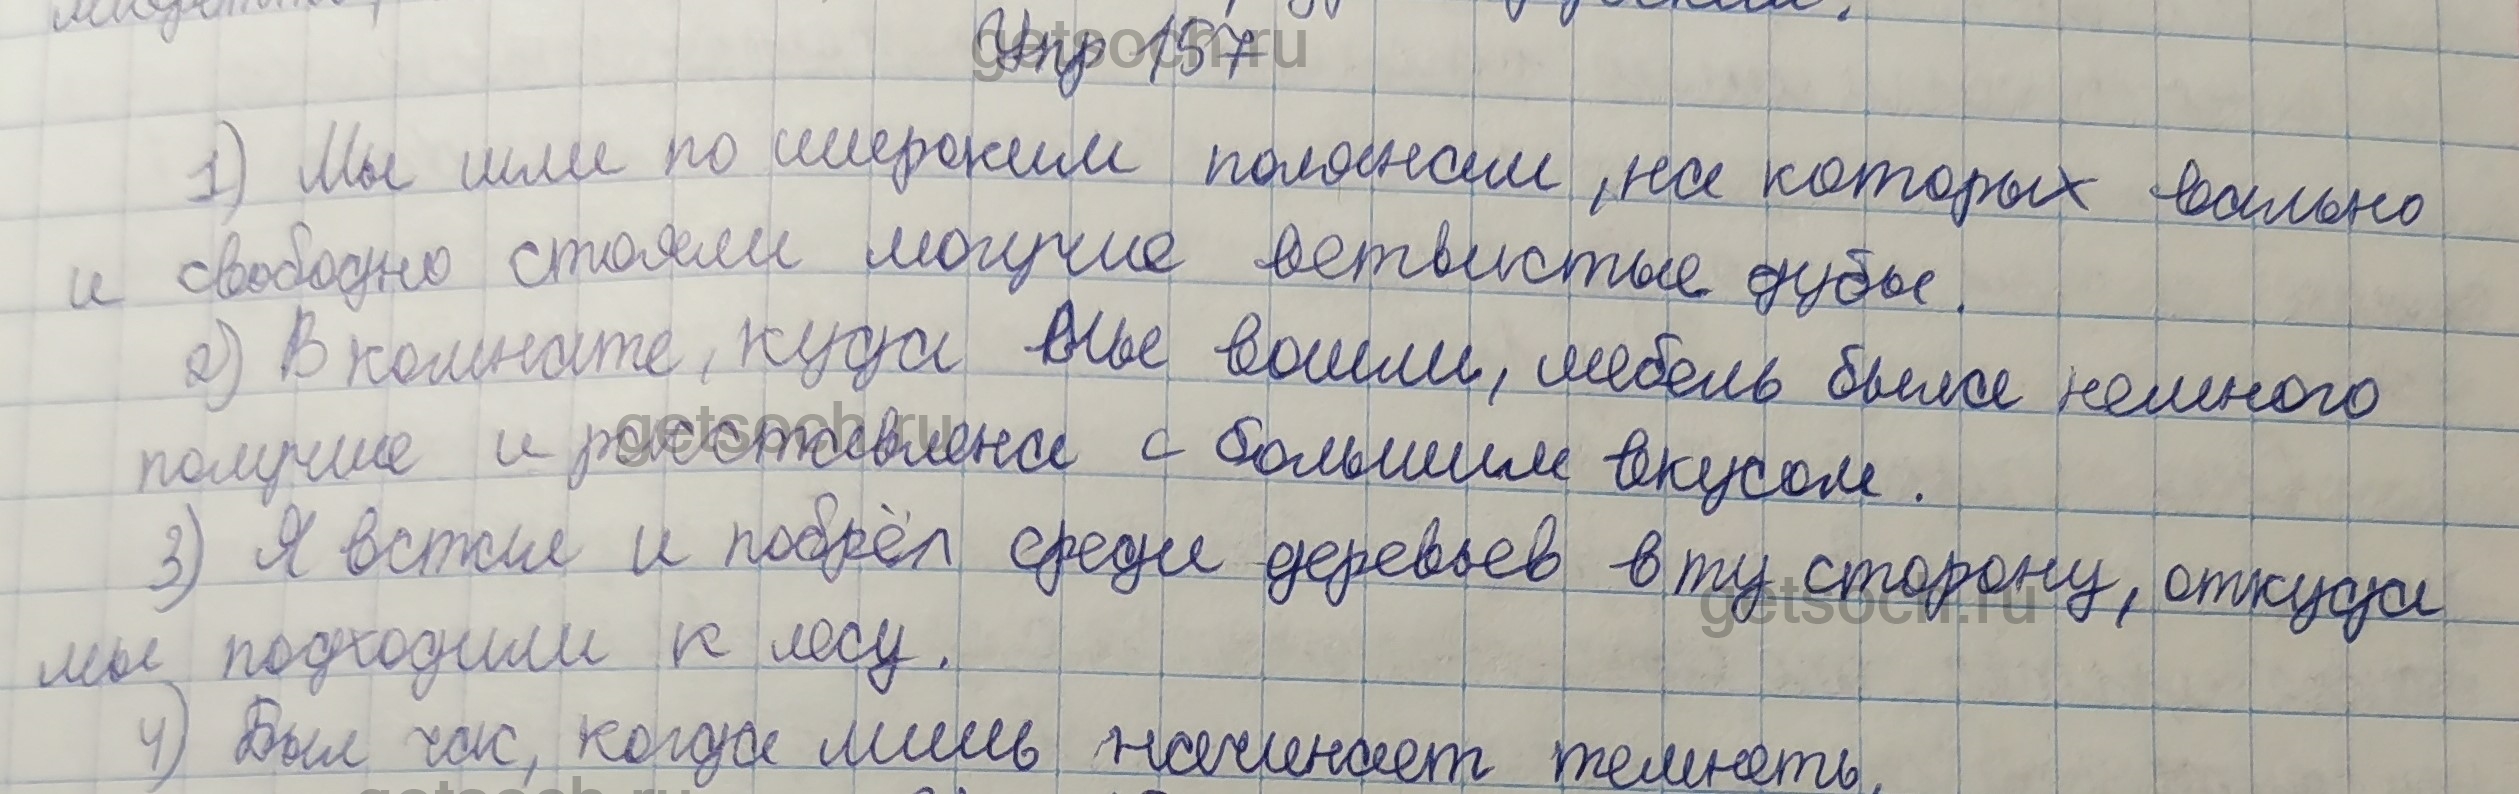 Упр 157
1) Мы шли по широким полянам, на которых вально
и свободно стояли могучие ветвистые дубы.
2) В комнате, куда мы вошли, мебель была немного
получше и расставлена с большим вкусом.
3) Я встал и побрёл среди деревьев в ту сторону, откуда
мы подходили к лесу.
4) Был час, когда лишь начинает темнеть.
getsoch.ru
getsoch.ru
getsoch.ru
getsoch.ru